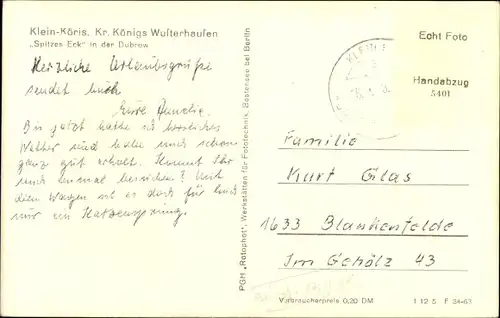 Klein-Köris. Kr. Königs Wusterhausen
„Spitzes Eck" in der Dubrow
Herzliche Urlaubsgrüße
sendet Euch
Eure Amelie.
Bis jetzt hatte ich herrliches
Wetter und habe mich schon
ganz gut erholt. Kommt Ihr
mich einmal besuchen? Mit
dem Wagen ist es doch für Euch
nur ein Katzensprung.
PGH „Rotophot", Werkstätten für Fototechnik, Bestensee bei Berlin
Echt Foto
Handabzug
5401
Familie
Kurt Glas
1633 Blankenfelde
Im Gehölz 43
Verbraucherpreis 0,20 DM
1 12 5 F 34-63